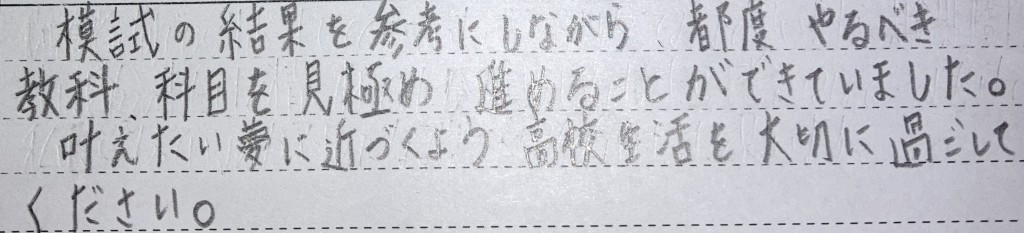 模試の結果を参考にしながら、都度やるべき
教科、科目を見極め進めることができていました。
叶えたい夢に近づくよう高校生活を大切に過ごして
ください。